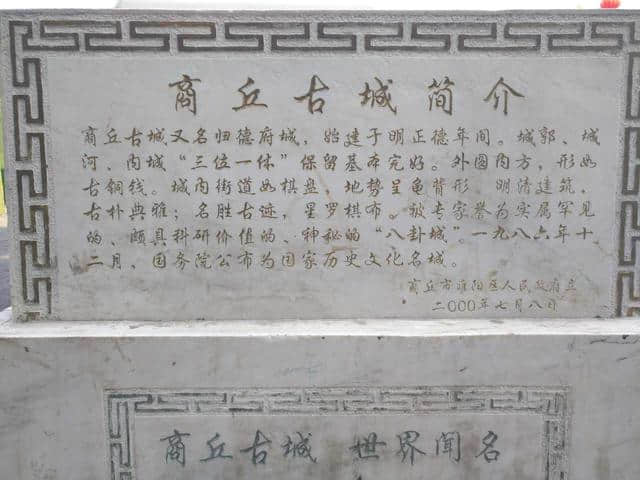 商丘古城简介
商丘古城又名归德府城，始建于明正德年间。城郭、城
河、内城“三位一体”保留基本完好。外圆内方，形如
古铜钱。城内街道如棋盘，地势呈龟背形，明清建筑，
古朴典雅；名胜古迹，星罗棋布。被专家誉为实属罕见
的、颇具科研价值的、神秘的“八卦城”。一九八六年十
二月，国务院公布为国家历史文化名城。
商丘市睢阳区人民政府立
二〇〇〇年七月八日
商丘古城 世界闻名